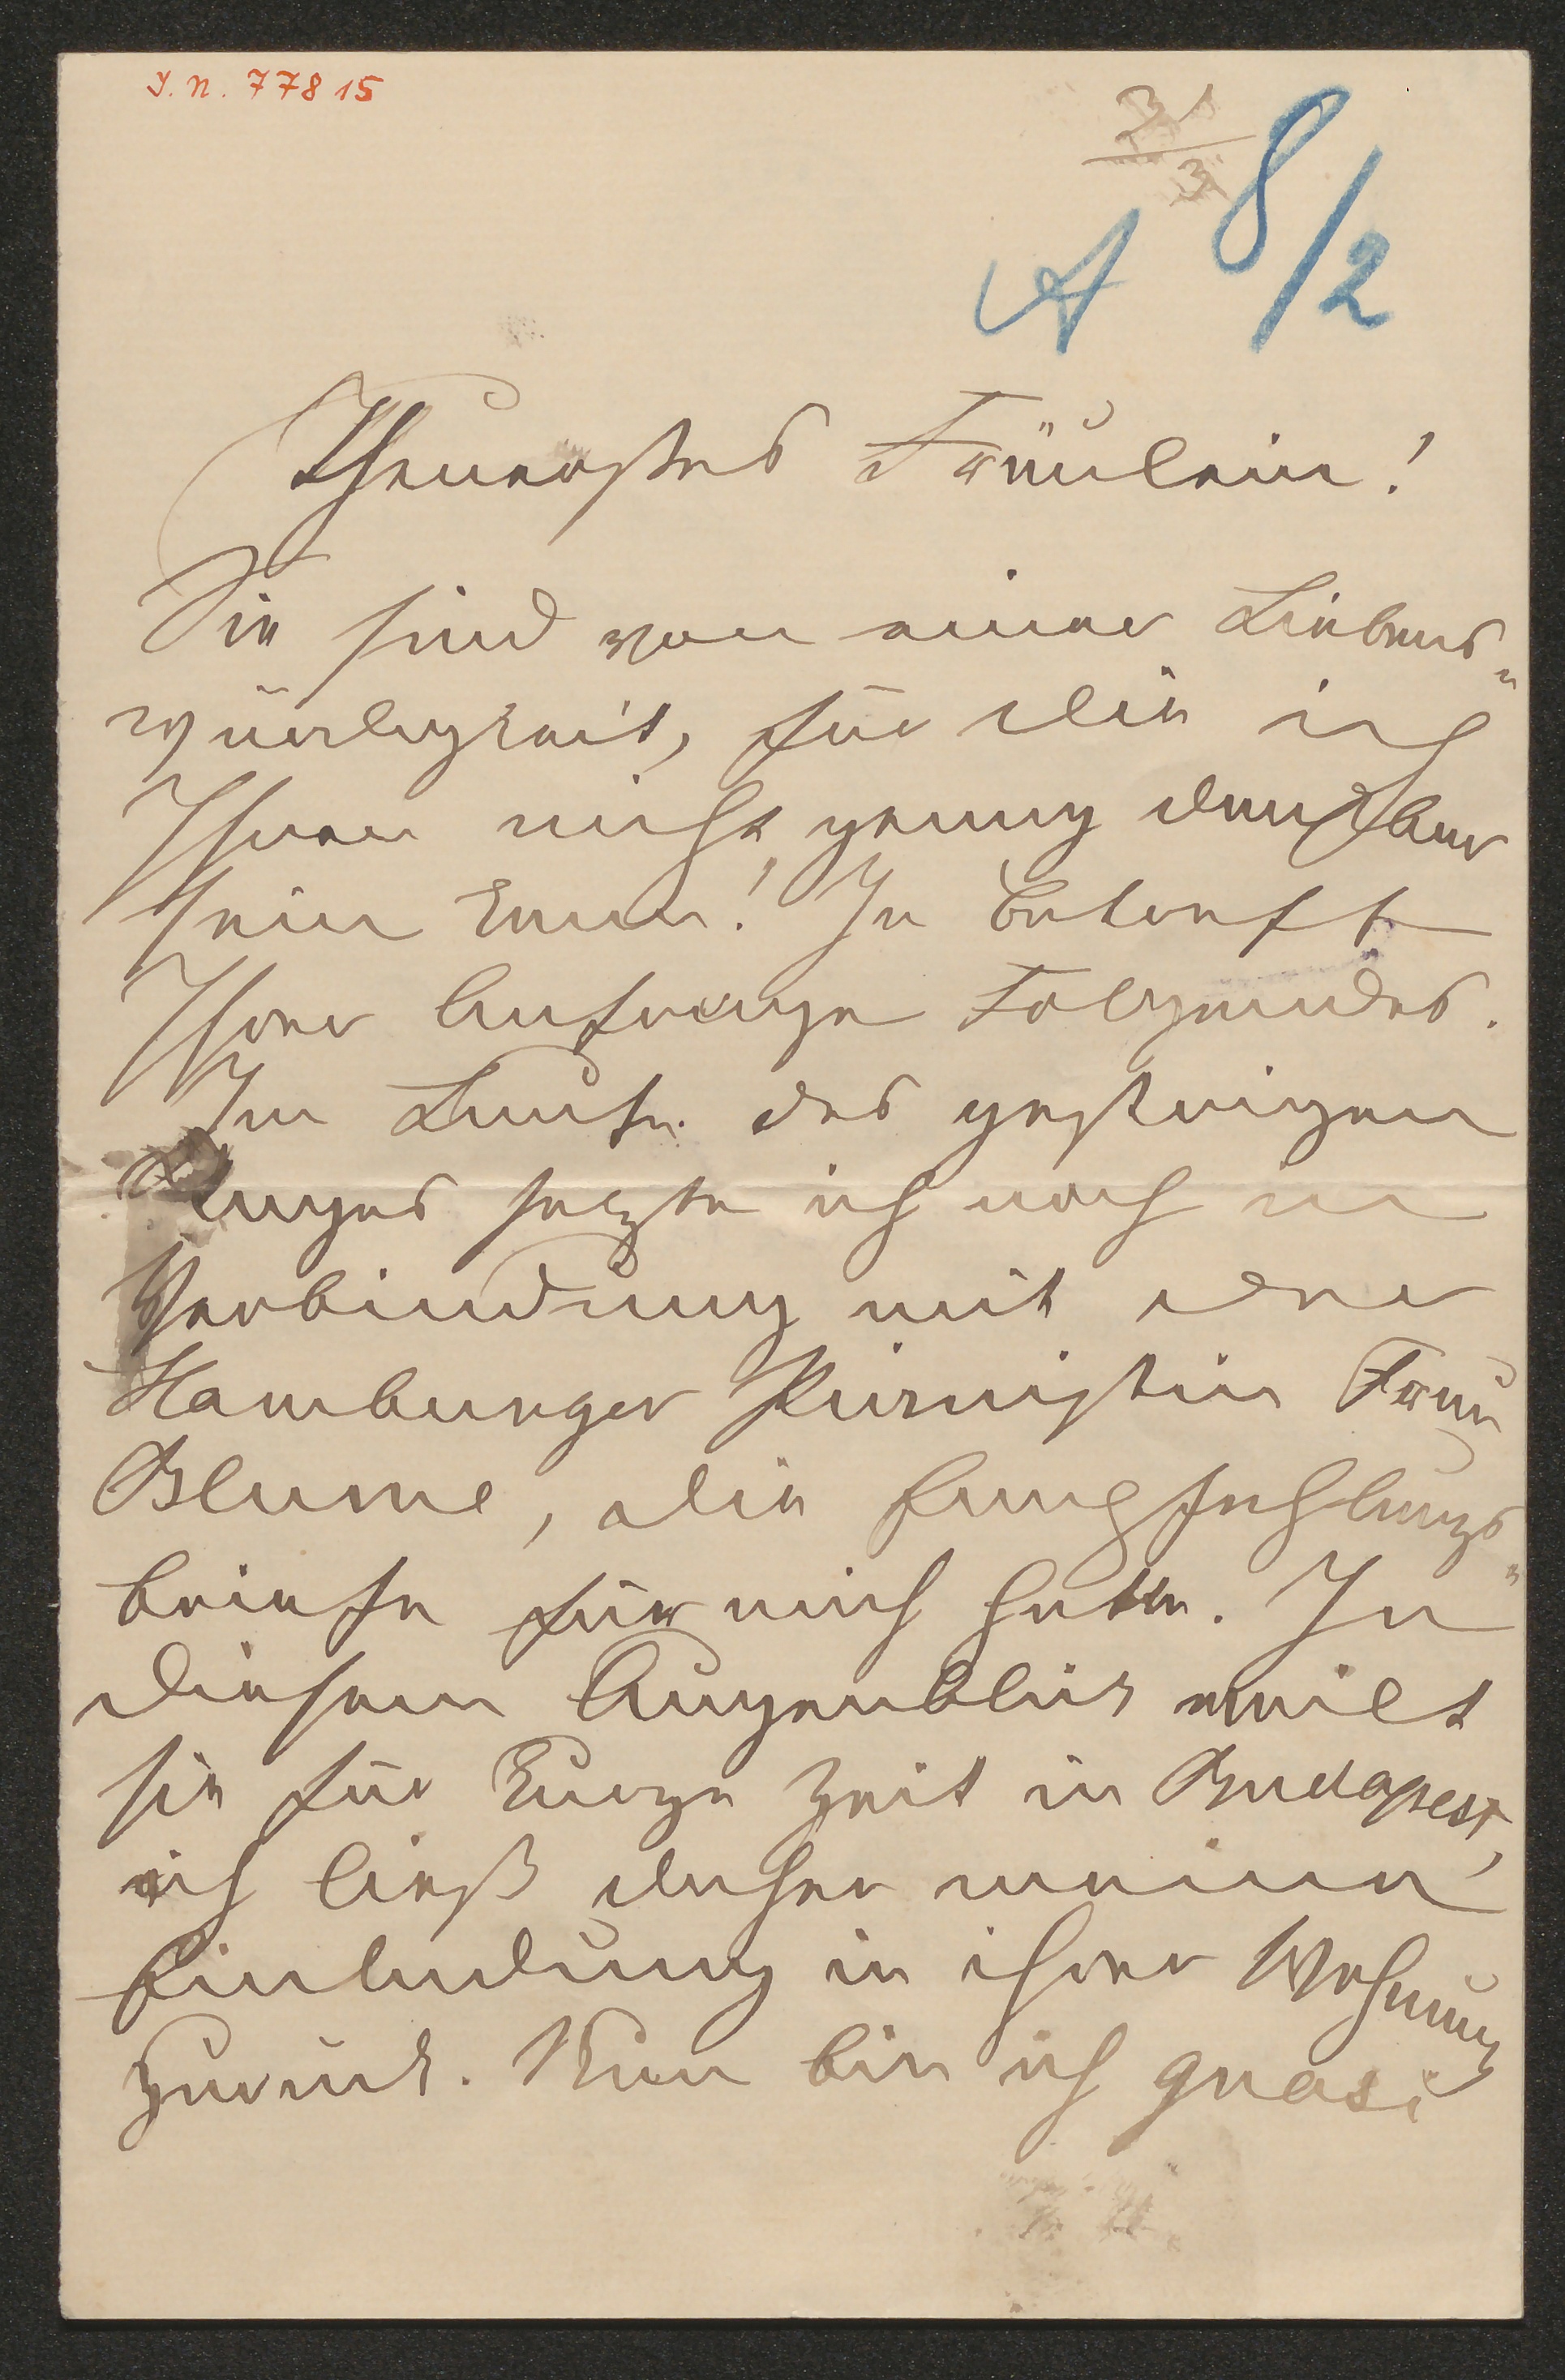 I. N. 77815
3/3
A 8/2
Theuerstes Fräulein!
Sie sind von einer Liebens-
würdigkeit, für die ich
Ihnen nicht genug dankbar
sein kann! In betreff
Ihrer Anfrage Folgendes.
Im Laufe des gestrigen
Tages setzte ich mich in
Verbindung mit der
Hamburger Pianistin Frau
Blume, die Empfehlungs-
briefe für mich hatte. In
diesem Augenblick weilt
sie für kurze Zeit in Budapest,
ich ließ daher meine
Einladung in ihrer Wohnung
zurück. Nun bin ich quasi